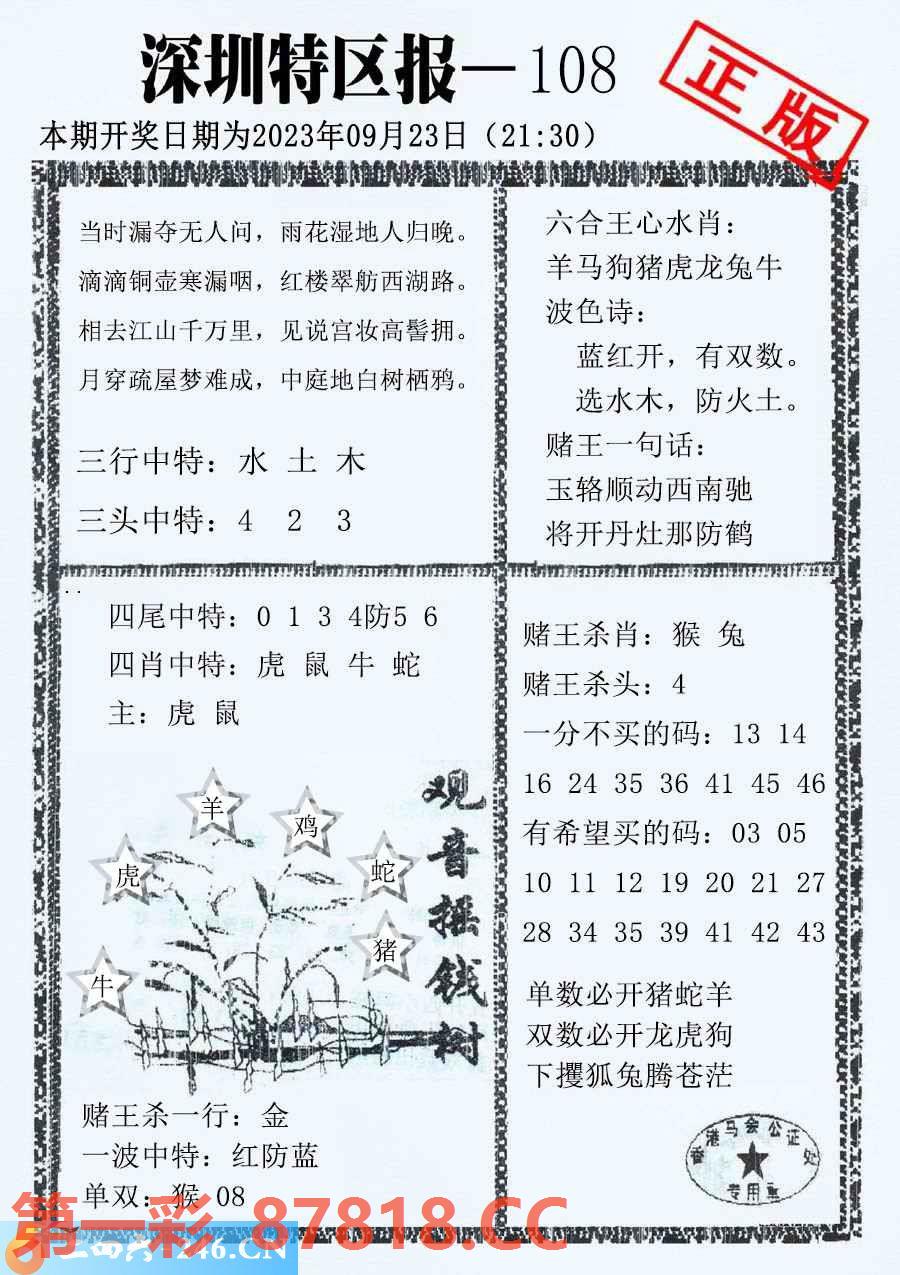 深圳特区报—108
正版
本期开奖日期为2023年09月23日（21:30）
当时漏夺无人问，雨花湿地人归晚。
滴滴铜壶寒漏咽，红楼翠舫西湖路。
相去江山千万里，见说宫妆高髻拥。
月穿疏屋梦难成，中庭地白树栖鸦。
三行中特：水 土 木
三头中特：4 2 3
六合王心水肖：
羊马狗猪虎龙兔牛
波色诗：
蓝红开，有双数。
选水木，防火土。
赌王一句话：
玉辂顺动西南驰
将开丹灶那防鹤
四尾中特：0 1 3 4防5 6
四肖中特：虎 鼠 牛 蛇
主：虎 鼠
观音摇钱树
羊
鸡
虎
蛇
猪
牛
赌王杀一行：金
一波中特：红防蓝
单双：猴 08
赌王杀肖：猴 兔
赌王杀头：4
一分不买的码：13 14
16 24 35 36 41 45 46
有希望买的码：03 05
10 11 12 19 20 21 27
28 34 35 39 41 42 43
单数必开猪蛇羊
双数必开龙虎狗
下攫狐兔腾苍茫
香港马会公证处
专用章
第一彩 87818.CC
246.CN